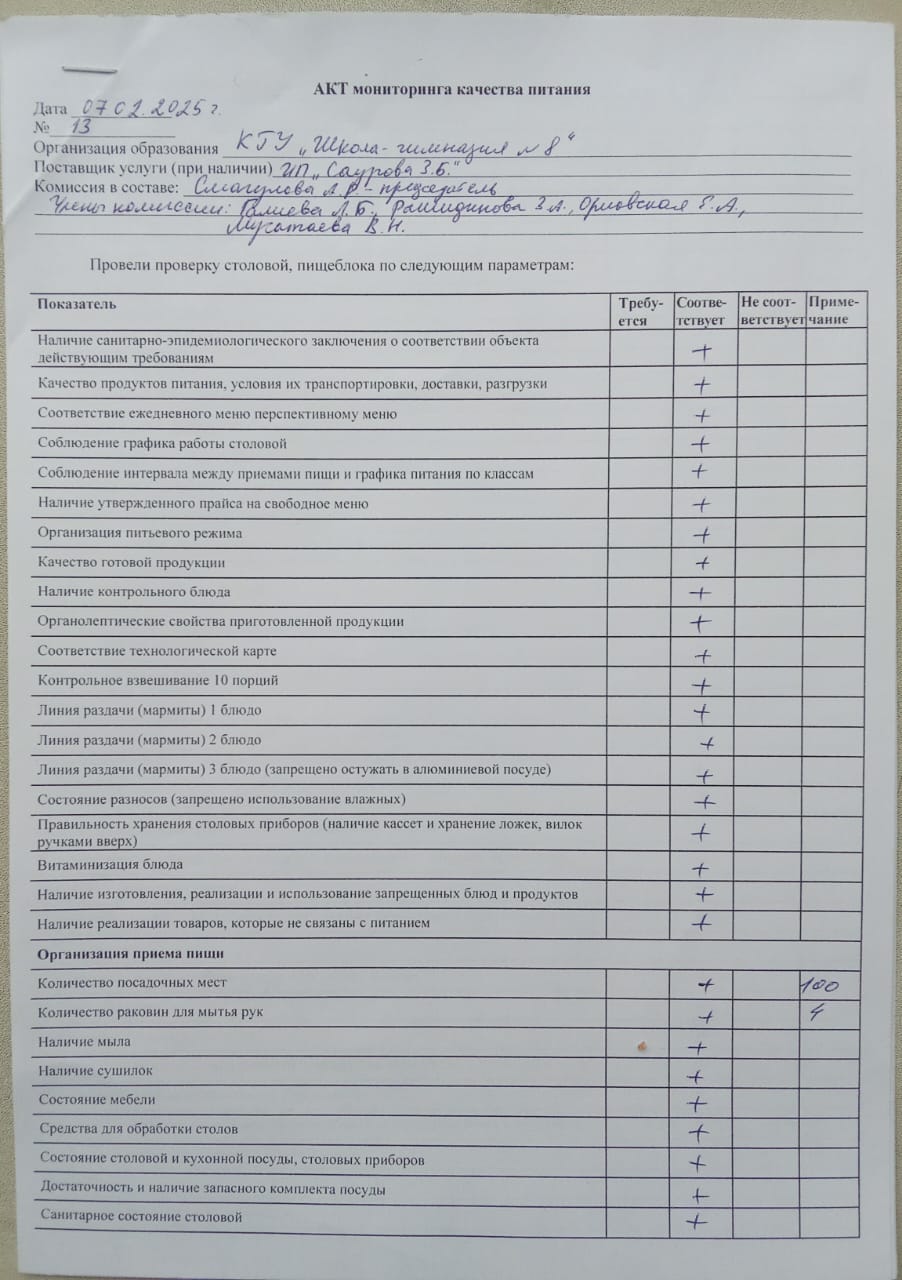 АКТ мониторинга качества питания
Дата 07 02. 2025 г.
№ 13
Организация образования КГУ „Школа-гимназия №8"
Поставщик услуги (при наличии) ИП „Саурова З.Б."
Комиссия в составе: Смагулова Л.Р. - председатель
Члены комиссии: Галиева Л.Б., Рашидинова З.А., Орловская Е.А.,
Мусатаева В.Н.
Провели проверку столовой, пищеблока по следующим параметрам:
Показатель Требу-ется Соотве-тствует Не соот-ветствует Приме-чание
Наличие санитарно-эпидемиологического заключения о соответствии объекта
действующим требованиям +
Качество продуктов питания, условия их транспортировки, доставки, разгрузки +
Соответствие ежедневного меню перспективному меню +
Соблюдение графика работы столовой +
Соблюдение интервала между приемами пищи и графика питания по классам +
Наличие утвержденного прайса на свободное меню +
Организация питьевого режима +
Качество готовой продукции +
Наличие контрольного блюда +
Органолептические свойства приготовленной продукции +
Соответствие технологической карте +
Контрольное взвешивание 10 порций +
Линия раздачи (мармиты) 1 блюдо +
Линия раздачи (мармиты) 2 блюдо +
Линия раздачи (мармиты) 3 блюдо (запрещено остужать в алюминиевой посуде) +
Состояние разносов (запрещено использование влажных) +
Правильность хранения столовых приборов (наличие кассет и хранение ложек, вилок
ручками вверх) +
Витаминизация блюда +
Наличие изготовления, реализации и использование запрещенных блюд и продуктов +
Наличие реализации товаров, которые не связаны с питанием +
Организация приема пищи
Количество посадочных мест + 100
Количество раковин для мытья рук + 4
Наличие мыла +
Наличие сушилок +
Состояние мебели +
Средства для обработки столов +
Состояние столовой и кухонной посуды, столовых приборов +
Достаточность и наличие запасного комплекта посуды +
Санитарное состояние столовой +